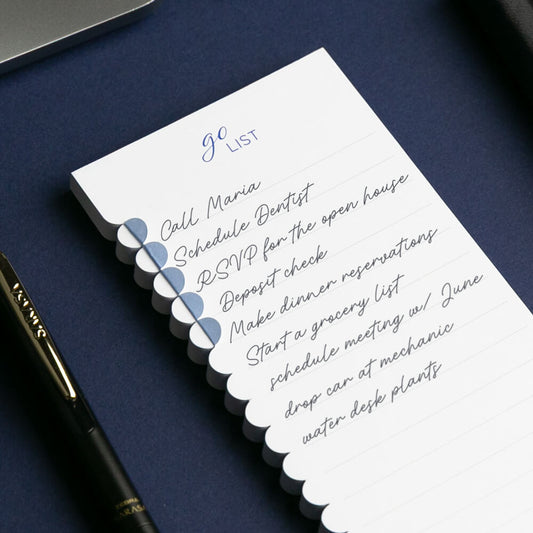 go
LIST
Call Maria
Schedule Dentist
RSVP for the open house
Deposit check
Make dinner reservations
Start a grocery list
schedule meeting w/ June
drop car at mechanic
water desk plants